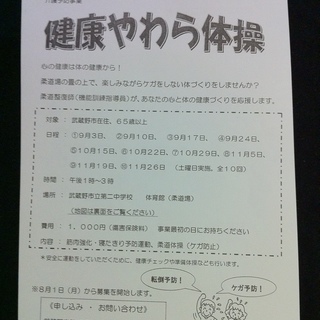 介護予防事業
健康やわら体操
心の健康は体の健康から！
柔道場の畳の上で、楽しみながらケガをしない体づくりをしませんか？
柔道整復師（機能訓練指導員）が、あなたの心と体の健康づくりを応援します。
対象：武蔵野市在住、６５歳以上
日程：①９月３日、②９月１０日、③９月１７日、④９月２４日、
⑤１０月１５日、⑥１０月２２日、⑦１０月２９日、⑧１１月５日、
⑨１１月１９日、⑩１１月２６日（土曜日実施、全１０回）
時間：午後１時～３時
場所：武蔵野市立第二中学校 体育館（柔道場）
（地図は裏面をご覧ください）
費用：１，０００円（傷害保険料） 事業最初の日にお持ちください
内容：筋肉強化・寝たきり予防運動、柔道体操（ケガ防止）
＊安全に運動をしていただくために、健康チェックや準備体操なども行います。
転倒予防！
ケガ予防！
※８月１日（月）から募集を開始します。
《申し込み・お問い合わせ》